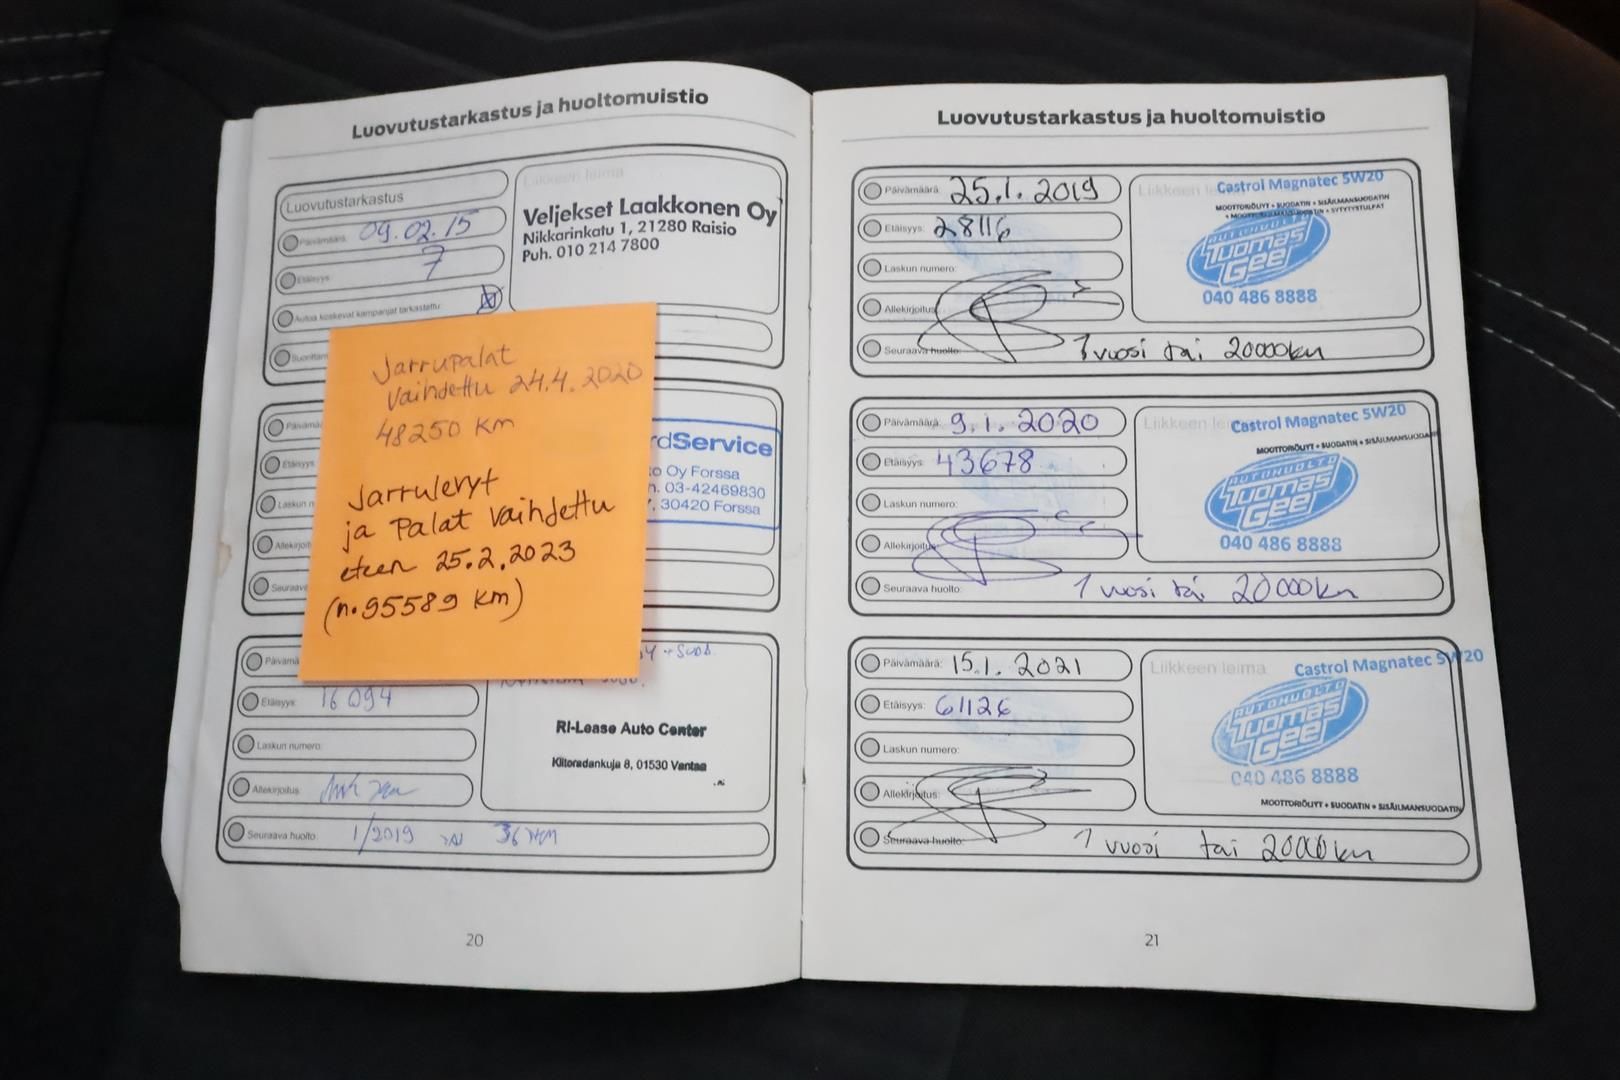 Luovutustarkastus ja huoltomuistio
Luovutustarkastus
Päivämäärä: 09.02.15
Etäisyys: 7
Autoa koskevat kampanjat tarkastettu:
Liikkeen leima
Veljekset Laakkonen Oy
Nikkarinkatu 1, 21280 Raisio
Puh. 010 214 7800
Jarrupalat
vaihdettu 24.4.2020
48250 km
Jarrulevyt
ja Palat vaihdettu
eteen 25.2.2023
(n.95589 km)
rdService
Oy Forssa
03-42469830
30420 Forssa
Etäisyys: 16094
Laskun numero:
Allekirjoitus:
Seuraava huolto: 1/2019
RI-Lease Auto Center
Kiitoradankuja 8, 01530 Vantaa
20
Luovutustarkastus ja huoltomuistio
Päivämäärä: 25.1.2019
Etäisyys: 28116
Laskun numero:
Allekirjoitus:
Seuraava huolto: 1 vuosi tai 20000km
Castrol Magnatec 5W20
MOOTTORIÖLJYT + SUODATIN + SISÄILMANSUODATIN
AUTOHUOLTO
Tuomas
Geel
040 486 8888
Päivämäärä: 9.1.2020
Etäisyys: 43678
Laskun numero:
Allekirjoitus:
Seuraava huolto: 1 vuosi tai 20000km
Castrol Magnatec 5W20
MOOTTORIÖLJYT + SUODATIN + SISÄILMANSUODATIN
AUTOHUOLTO
Tuomas
Geel
040 486 8888
Päivämäärä: 15.1.2021
Etäisyys: 61126
Laskun numero:
Allekirjoitus:
Seuraava huolto: 1 vuosi tai 20000km
Liikkeen leima
Castrol Magnatec 5W20
AUTOHUOLTO
Tuomas
Geel
040 486 8888
MOOTTORIÖLJYT + SUODATIN + SISÄILMANSUODATIN
21